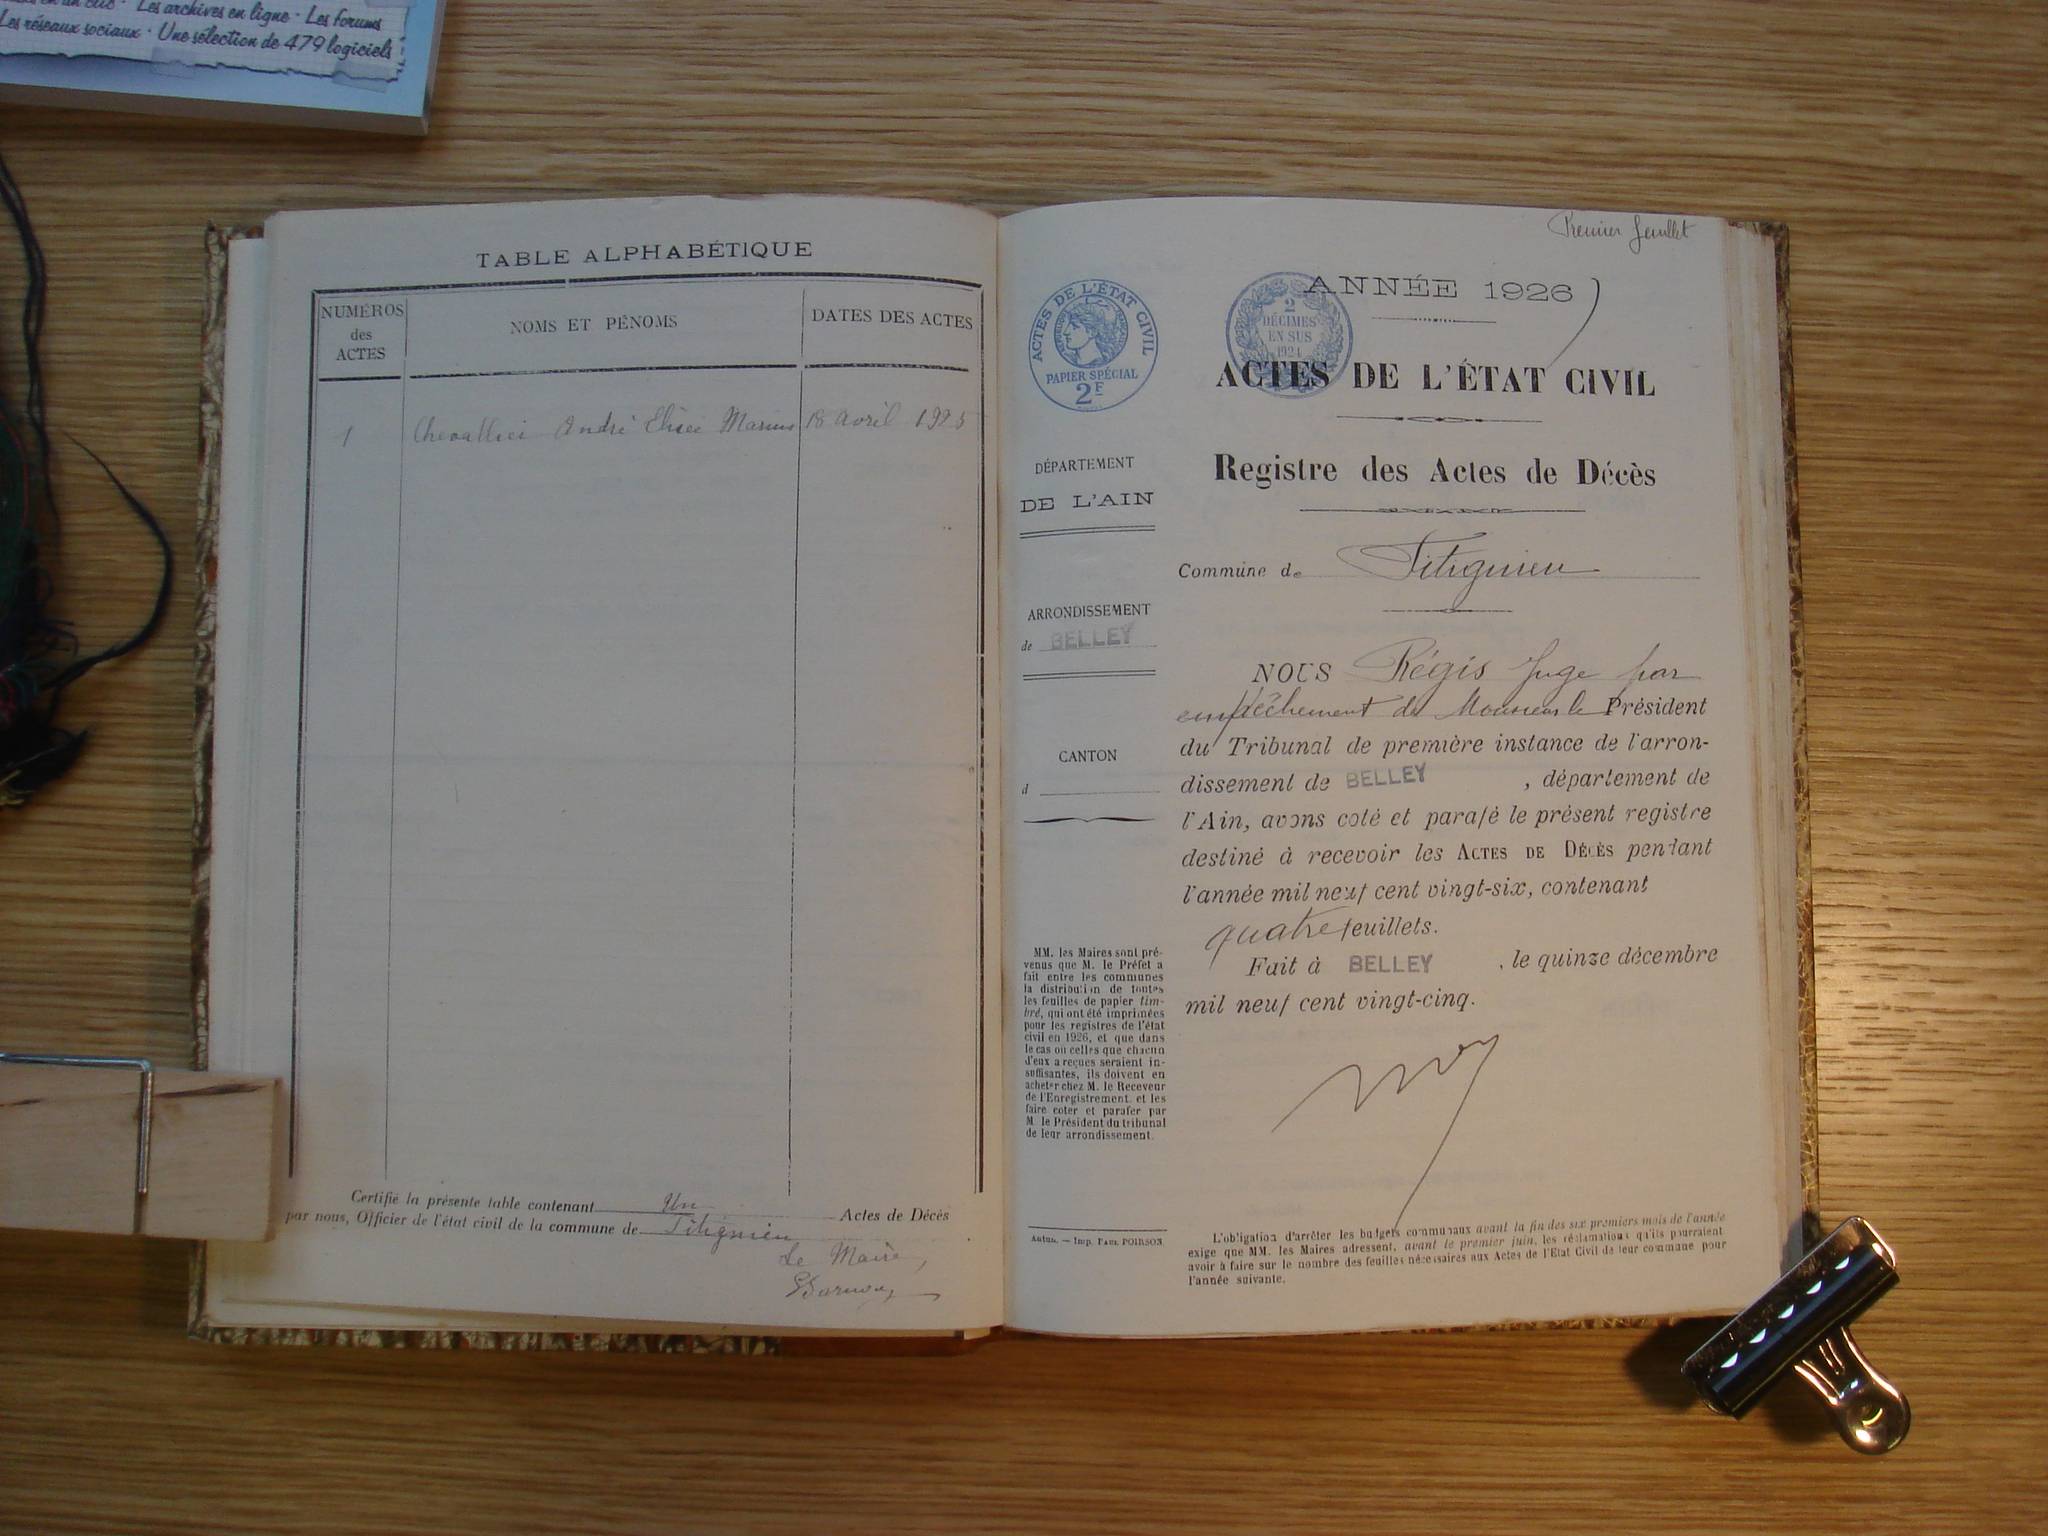 en un clic · Les archives en ligne · Les forums
Les réseaux sociaux · Une sélection de 479 logiciels
TABLE ALPHABÉTIQUE
NUMÉROS
des
ACTES
NOMS ET PÉNOMS
DATES DES ACTES
1 Chevallier André Elisée Marius 18 avril 1925
Certifié la présente table contenant Un Actes de Décès
par nous, Officier de l'état civil de la commune de Titignieu
Le Maire,
Premier feuillet
ANNÉE 1926
ACTES DE L'ÉTAT CIVIL
PAPIER SPÉCIAL
2F
2
DÉCIMES
EN SUS
1924
ACTES DE L'ÉTAT CIVIL
Registre des Actes de Décès
DÉPARTEMENT
DE L'AIN
Commune de Titignieu
ARRONDISSEMENT
de BELLEY
CANTON
d
NOUS Régis Juge par
empêchement de Monsieur le Président
du Tribunal de première instance de l'arron-
dissement de BELLEY, département de
l'Ain, avons coté et parafé le présent registre
destiné à recevoir les ACTES DE DÉCÈS pendant
l'année mil neuf cent vingt-six, contenant
quatre feuillets.
Fait à BELLEY, le quinze décembre
mil neuf cent vingt-cinq.
MM. les Maires sont pré-
venus que M. le Préfet a
fait entre les communes
la distribution de toutes
les feuilles de papier tim-
bré, qui ont été imprimées
pour les registres de l'état
civil en 1926, et que dans
le cas où celles que chacun
d'eux a reçues seraient in-
suffisantes, ils doivent en
acheter chez M. le Receveur
de l'Enregistrement, et les
faire coter et parafer par
M. le Président du tribunal
de leur arrondissement.
Autun. — Imp. Paul POIRSON
L'obligation d'arrêter les budgets communaux avant la fin des six premiers mois de l'année
exige que MM. les Maires adressent, avant le premier juin, les réclamations qu'ils pourraient
avoir à faire sur le nombre des feuilles nécessaires aux Actes de l'Etat Civil de leur commune pour
l'année suivante.